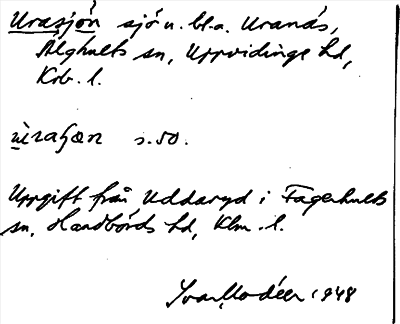 Urasjön sjö n. bl.a. Uranäs,
Älghults sn, Uppvidinge hd,
Krb. l.
ùraɧœn s.50.
Uppgift från Uddaryd i Fagerhults
sn, Handbörds hd, Klm. l.
Ivar Modéer 1948